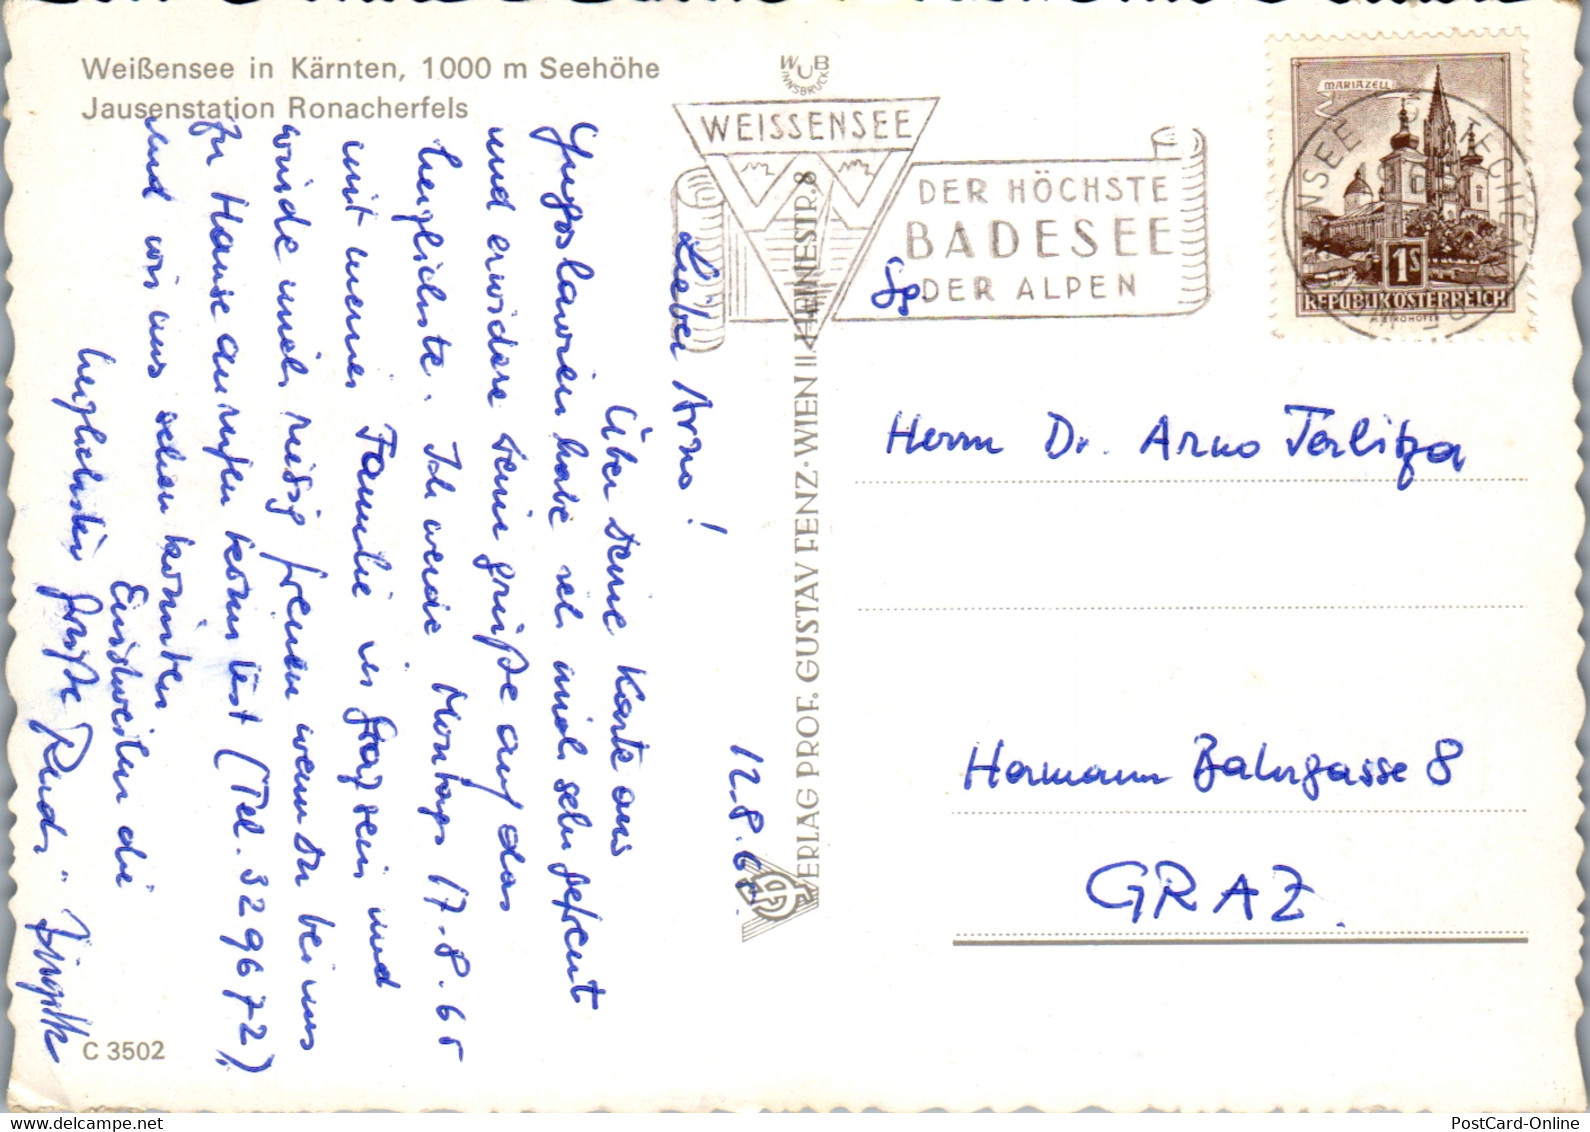 Weißensee in Kärnten, 1000 m Seehöhe
Jausenstation Ronacherfels
12.8.65.
Lieber Arno!
Über Deine Karte aus
Jugoslawien habe ich mich sehr gefreut
und erwidere Deine Grüße auf das
herzlichste. Ich werde Montags 17.8.65
mit meiner Familie in Graz sein und
würde mich riesig freuen wenn Du bei uns
zu Hause anrufen könntest (Tel. 329672)
und wir uns sehen könnten
Einstweilen die
herzlichsten Grüße Rudi
C 3502
WUB
INNSBRUCK
WEISSENSEE
DER HÖCHSTE
BADESEE
DER ALPEN
VERLAG PROF. GUSTAV FENZ·WIEN II., HEINESTR. 8
MARIAZELL
1S
REPUBLIK ÖSTERREICH
Sp.
Herrn Dr. Arno Terlitza
Hermann Bahrgasse 8
GRAZ.
PostCard-Online